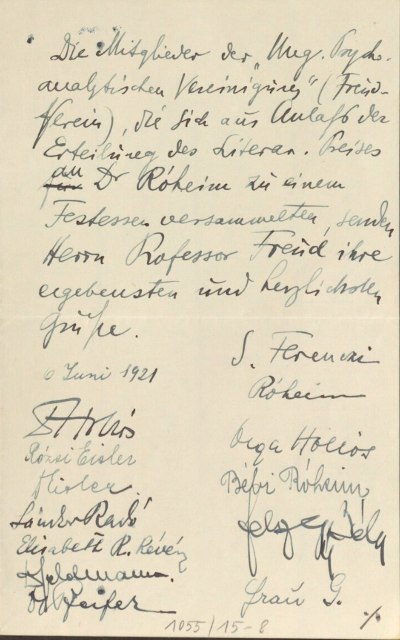 Die Mitglieder der „Ung. Psych-
analytischen Vereinigung" (Freud-
Verein), die sich aus Anlaß der
Erteilung des Literar. Preises
an Dr Róheim zu einem
Festessen versammelten, senden
Herrn Professor Freud ihre
ergebensten und herzlichsten
Grüße.
6 Juni 1921
S. Ferenczi
Róheim
Hollós
Olga Hollós
Rózsi Eisler
Eisler
Sándor Radó
Elisabeth R. Révész
Feldmann.
Pfeifer
Róheim
Béla
Frau G.
1055/15-8